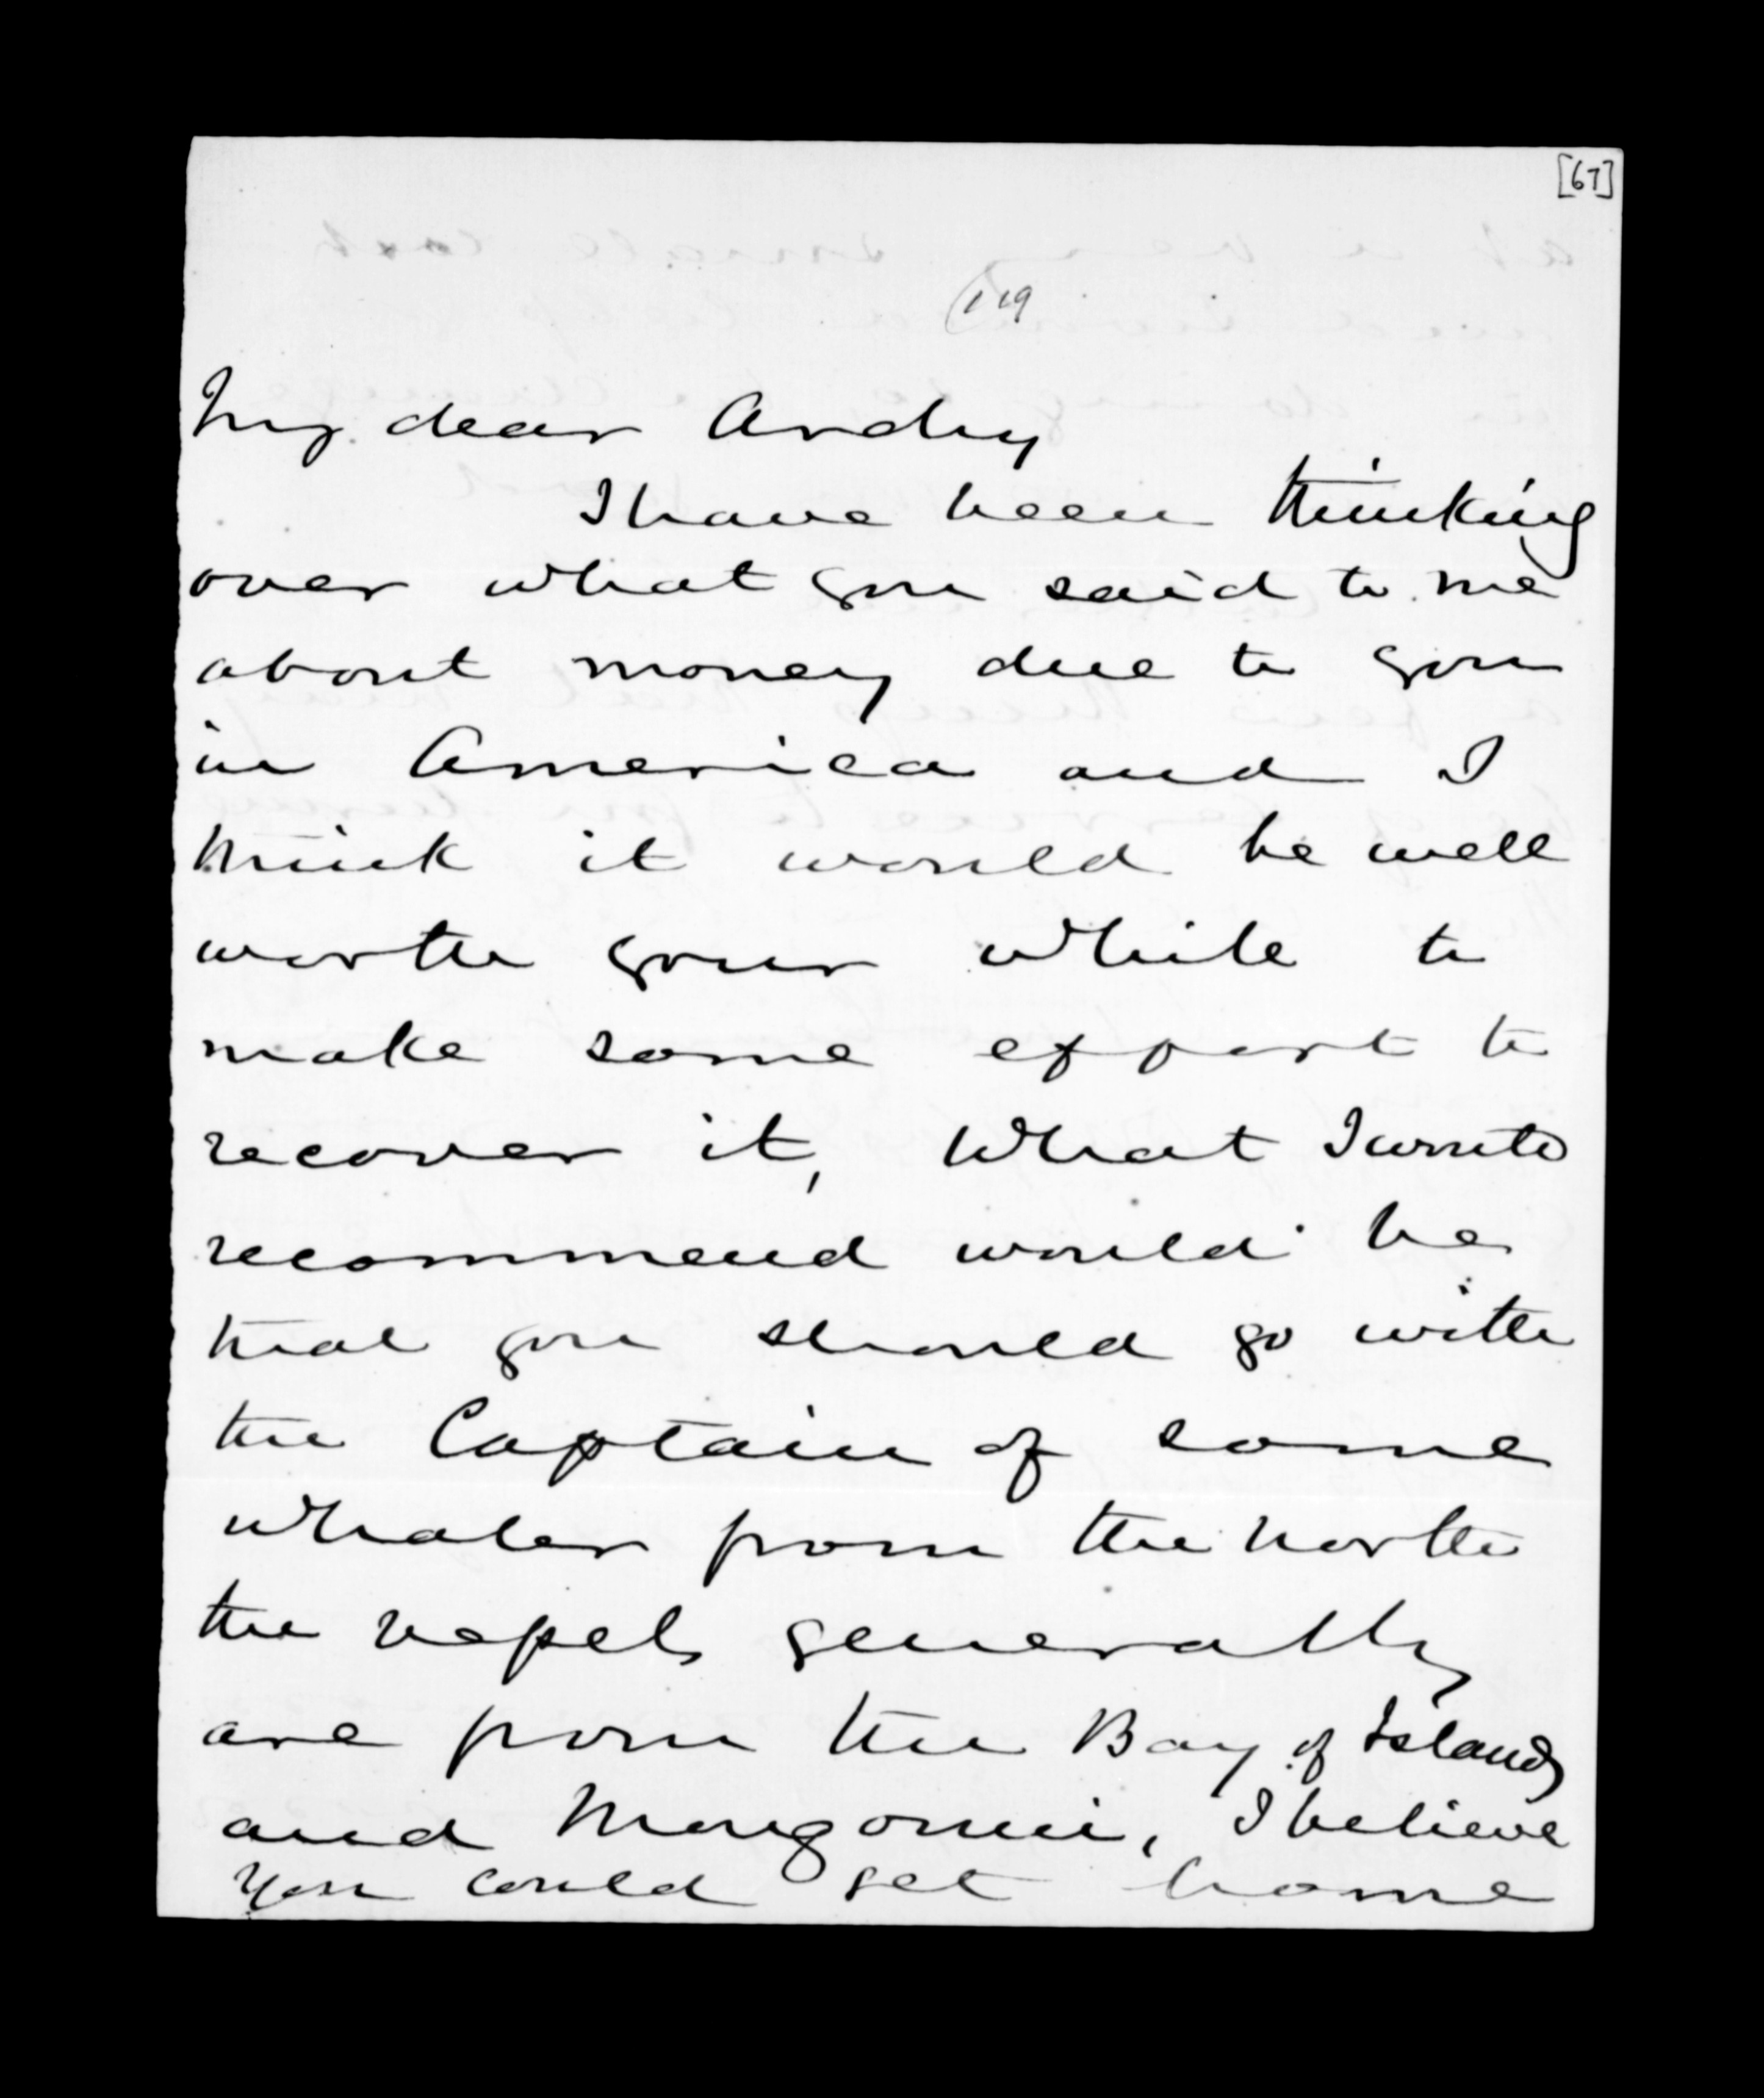 [67]
119
My dear Andy
I have been thinking
over what you said to me
about money due to you
in America and I
think it would be well
worth your while to
make some effort to
recover it, What I
recommend would be
that you should go with
the Captain of some
whaler from the North
the vessels generally
are from the Bay of Islands
and Mongonui, I believe
you could get home